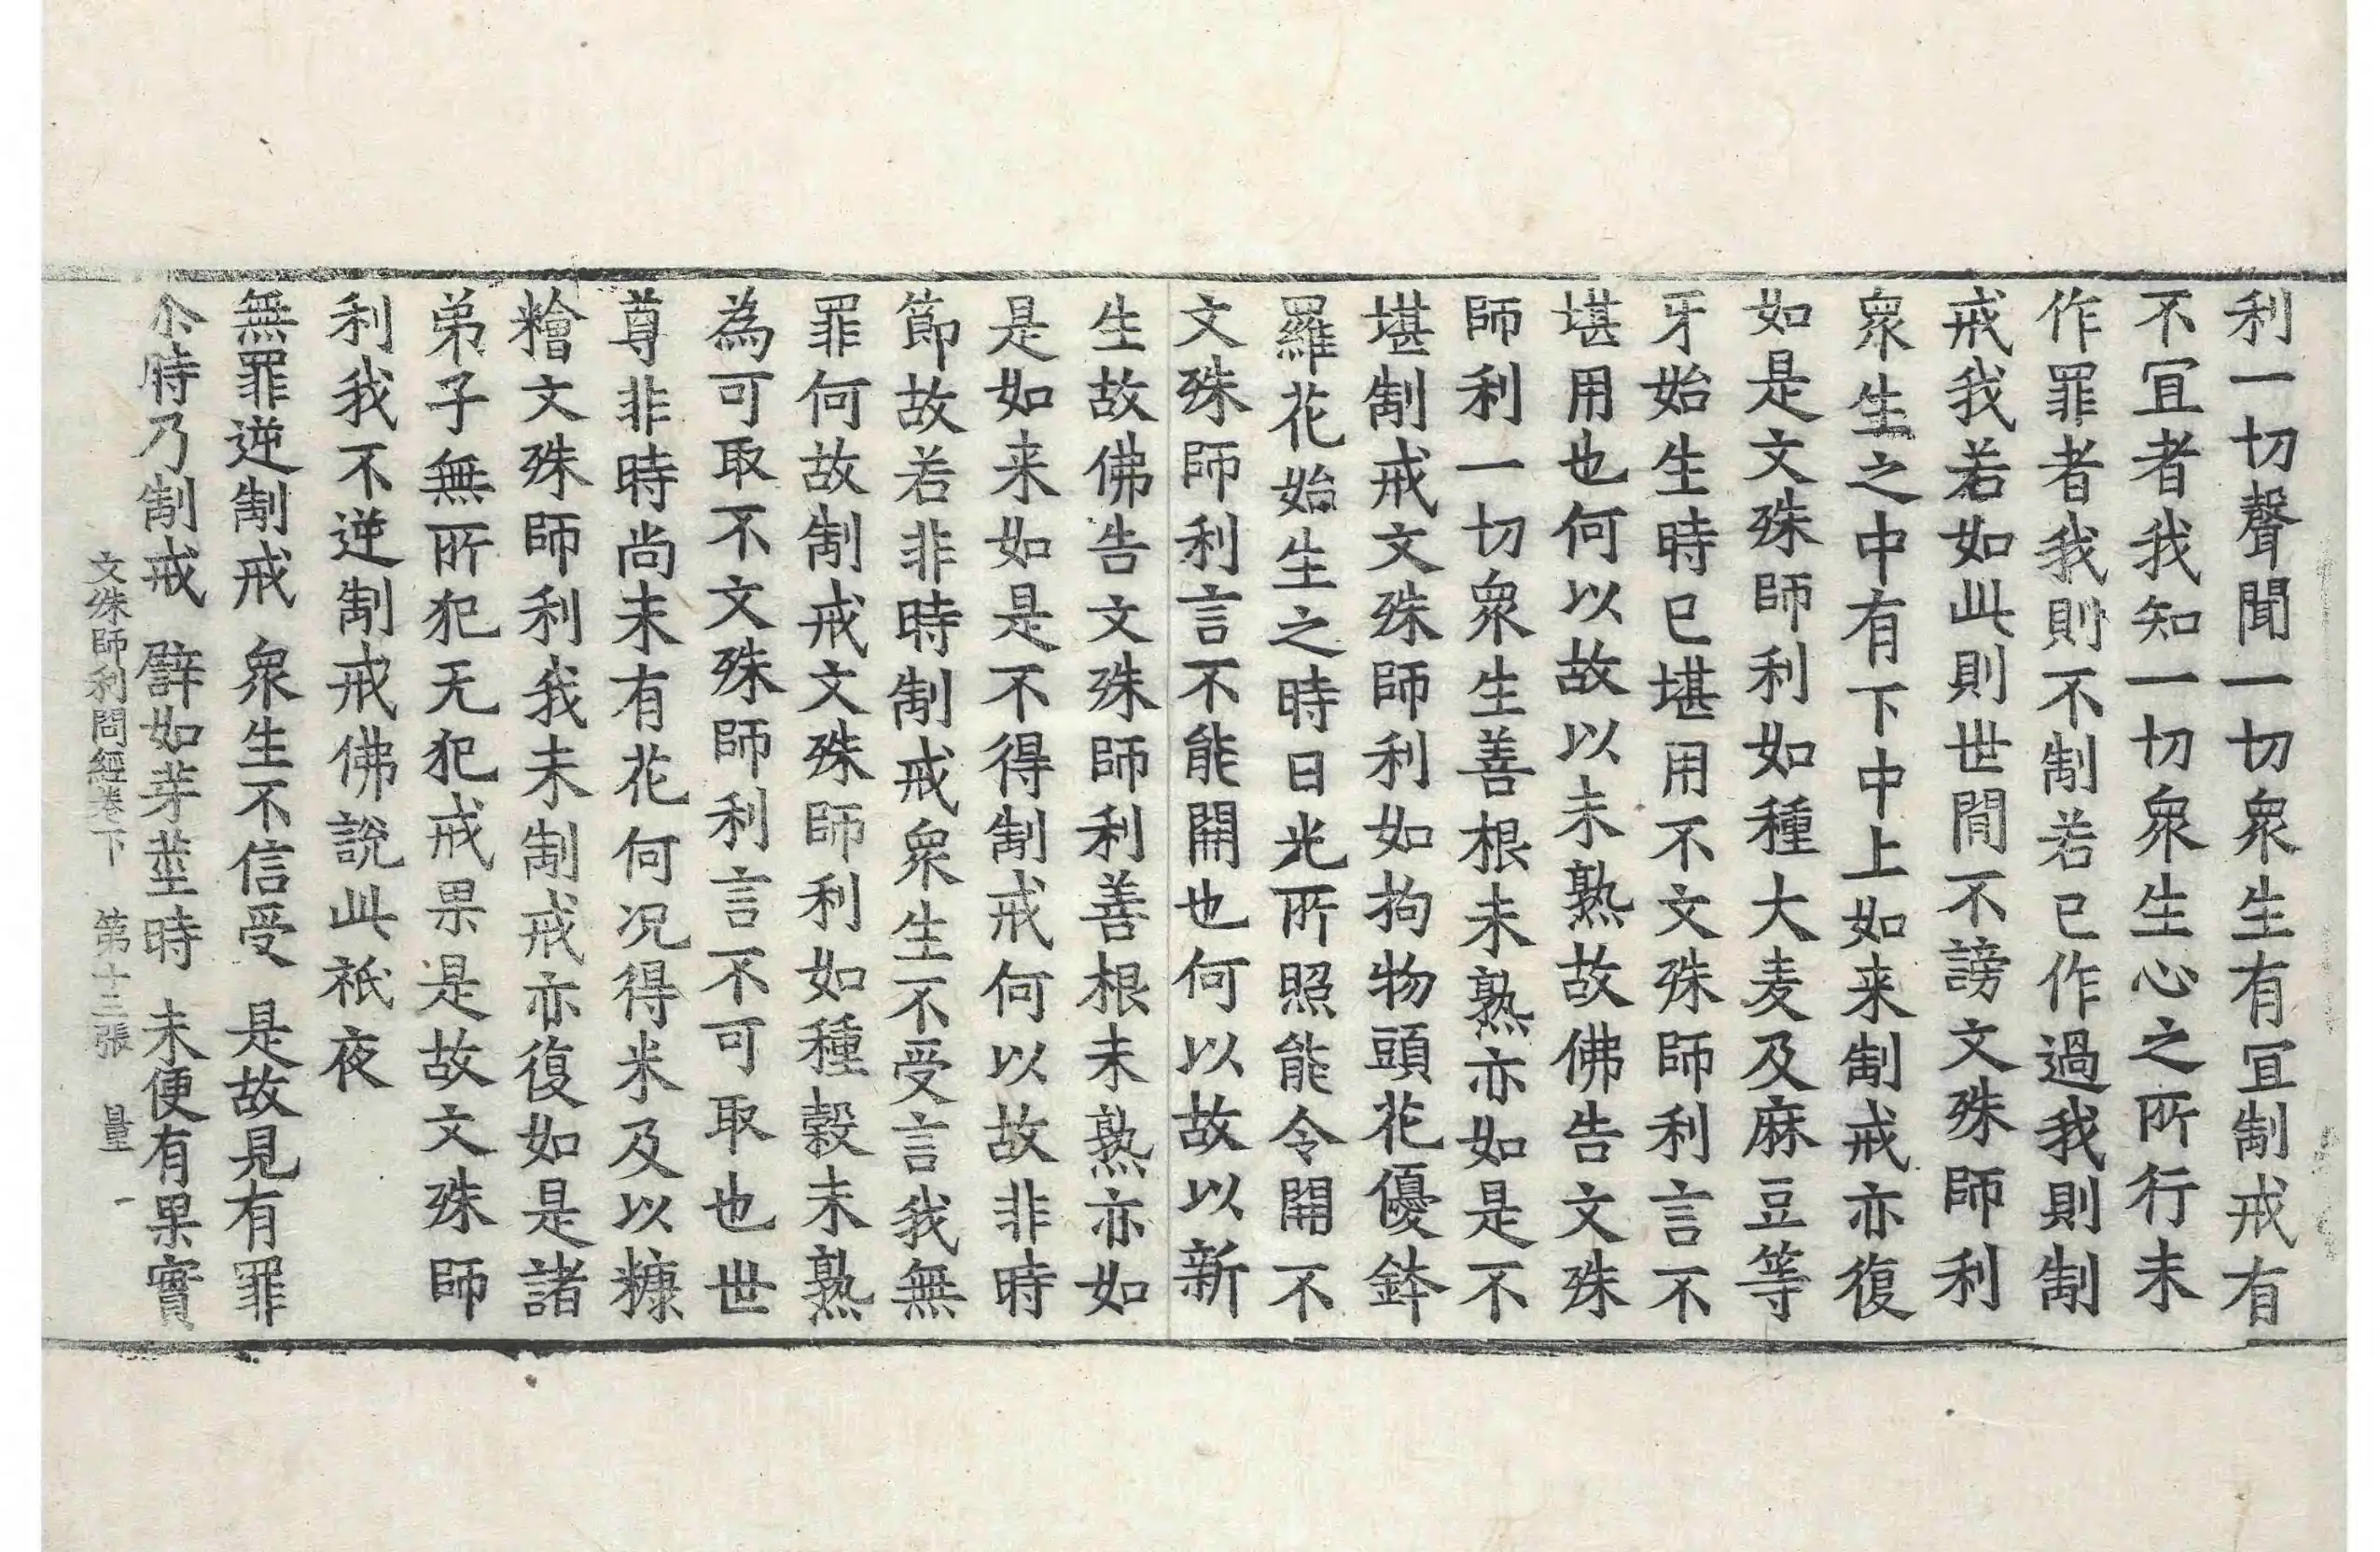 利一切聲聞一切衆生有冝制戒有
不冝者我知一切衆生心之所行未
作罪者我則不制若已作過我則制
戒我若如此則世間不謗文殊師利
衆生之中有下中上如来制戒亦復
如是文殊師利如種大麦及麻豆等
牙始生時已堪用不文殊師利言不
堪用也何以故以未熟故佛告文殊
師利一切衆生善根未熟亦如是不
堪制戒文殊師利如拘物頭花優鉢
羅花始生之時日光所照能令開不
文殊師利言不能開也何以故以新
生故佛告文殊師利善根未熟亦如
是如来如是不得制戒何以故非時
節故若非時制戒衆生不受言我無
罪何故制戒文殊師利如種穀未熟
為可取不文殊師利言不可取也世
尊非時尚未有花何况得米及以糠
糩文殊師利我未制戒亦復如是諸
弟子無所犯无犯戒果是故文殊師
利我不逆制戒佛說此祇夜
無罪逆制戒 衆生不信受 是故見有罪
尒時乃制戒 譬如芽莖時 未便有果實
文殊師利問經卷下 第十三張 量 一